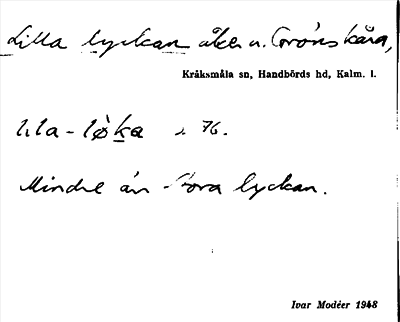 Lilla lyckan åker u. Grönskåra,
Kråksmåla sn, Handbörds hd, Kalm. l.
lıla-lø̀ka s. 76.
Mindre än Stora lyckan.
Ivar Modéer 1948